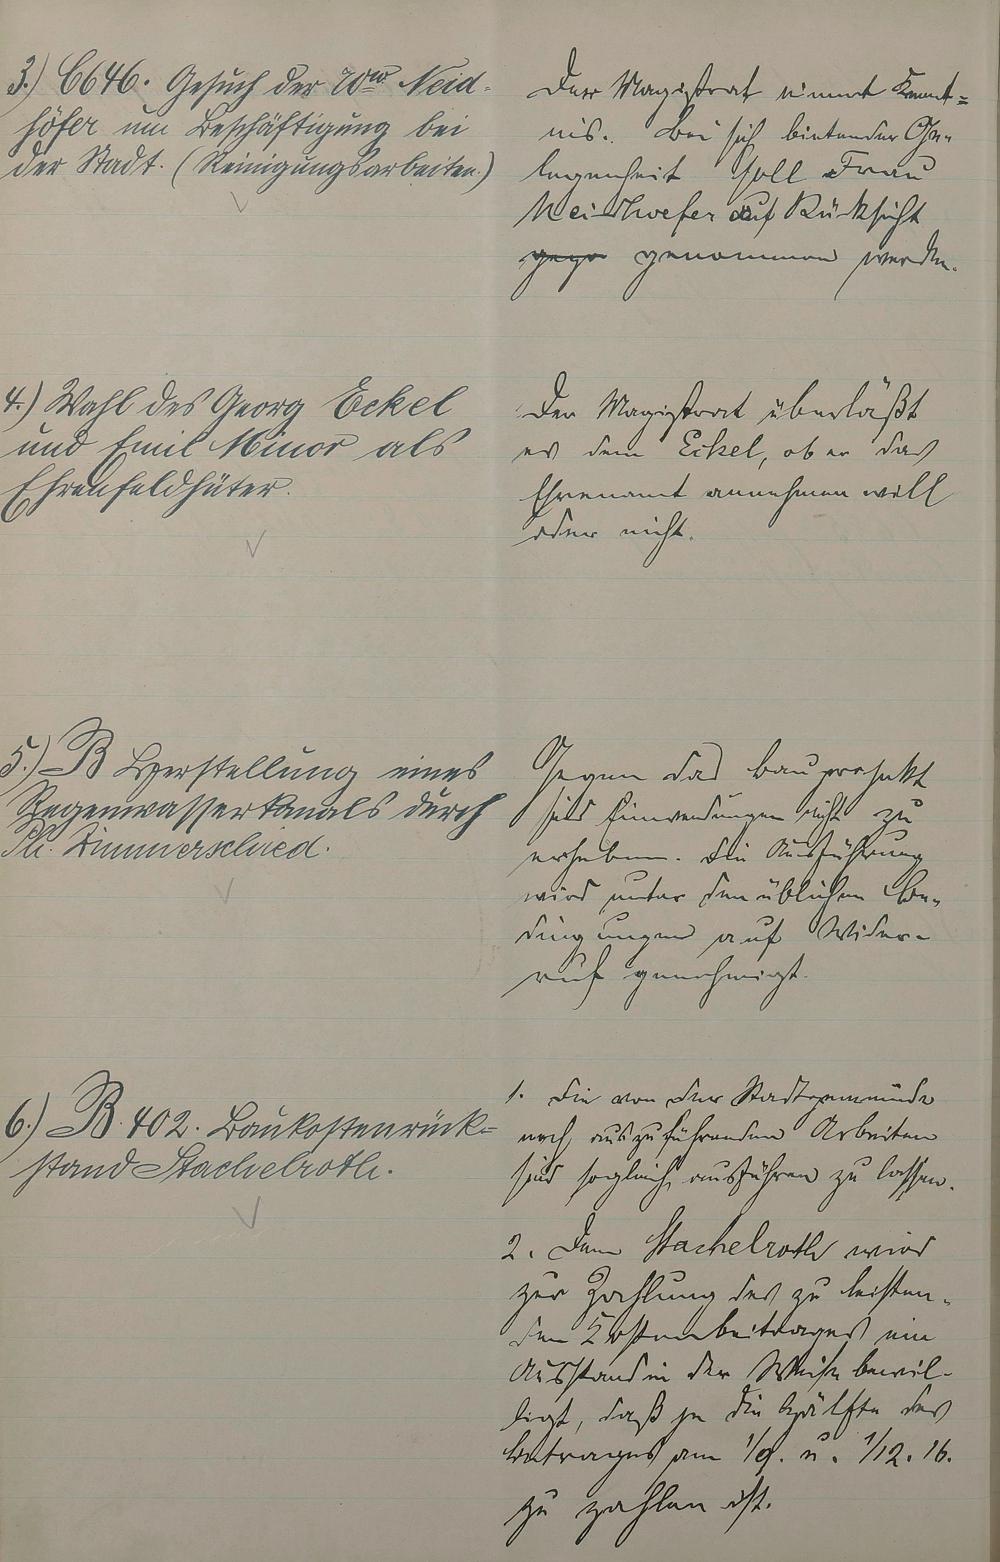 3.) C646. Gesuch der Wwe Neid-
höfer um Beschäftigung bei
der Stadt. (Reinigungsarbeiten.)
Der Magistrat nimmt Kennt-
nis. Bei sich bietender Ge-
legenheit soll Frau
Neidhoefer auf Rücksicht
genommen werden.
4.) Wahl des Georg Eckel
und Emil Minor als
Ehrenfeldhüter.
Der Magistrat überläßt
es dem Eckel, ob er das
Ehrenamt annehmen will
oder nicht.
5.) B Herstellung eines
Regenwasserkanals durch
Ph. Zimmerschied.
Gegen das Bauprojekt
sind Einwendungen nicht zu
erheben. Die Ausführung
wird unter den üblichen Be-
dingungen auf Wider-
ruf genehmigt.
6.) B. 402. Baukostenrück-
stand Stachelroth.
1. Die von der Stadtgemeinde
noch auszuführenden Arbeiten
sind sogleich ausführen zu lassen.
2. Dem Stachelroth wird
zur Zahlung des zu leisten-
den Kostenbeitrages ein
Ausstand in der Weise bewil-
ligt, daß je die Hälfte des
Betrages am 1/9. u. 1/12. 16.
zu zahlen ist.